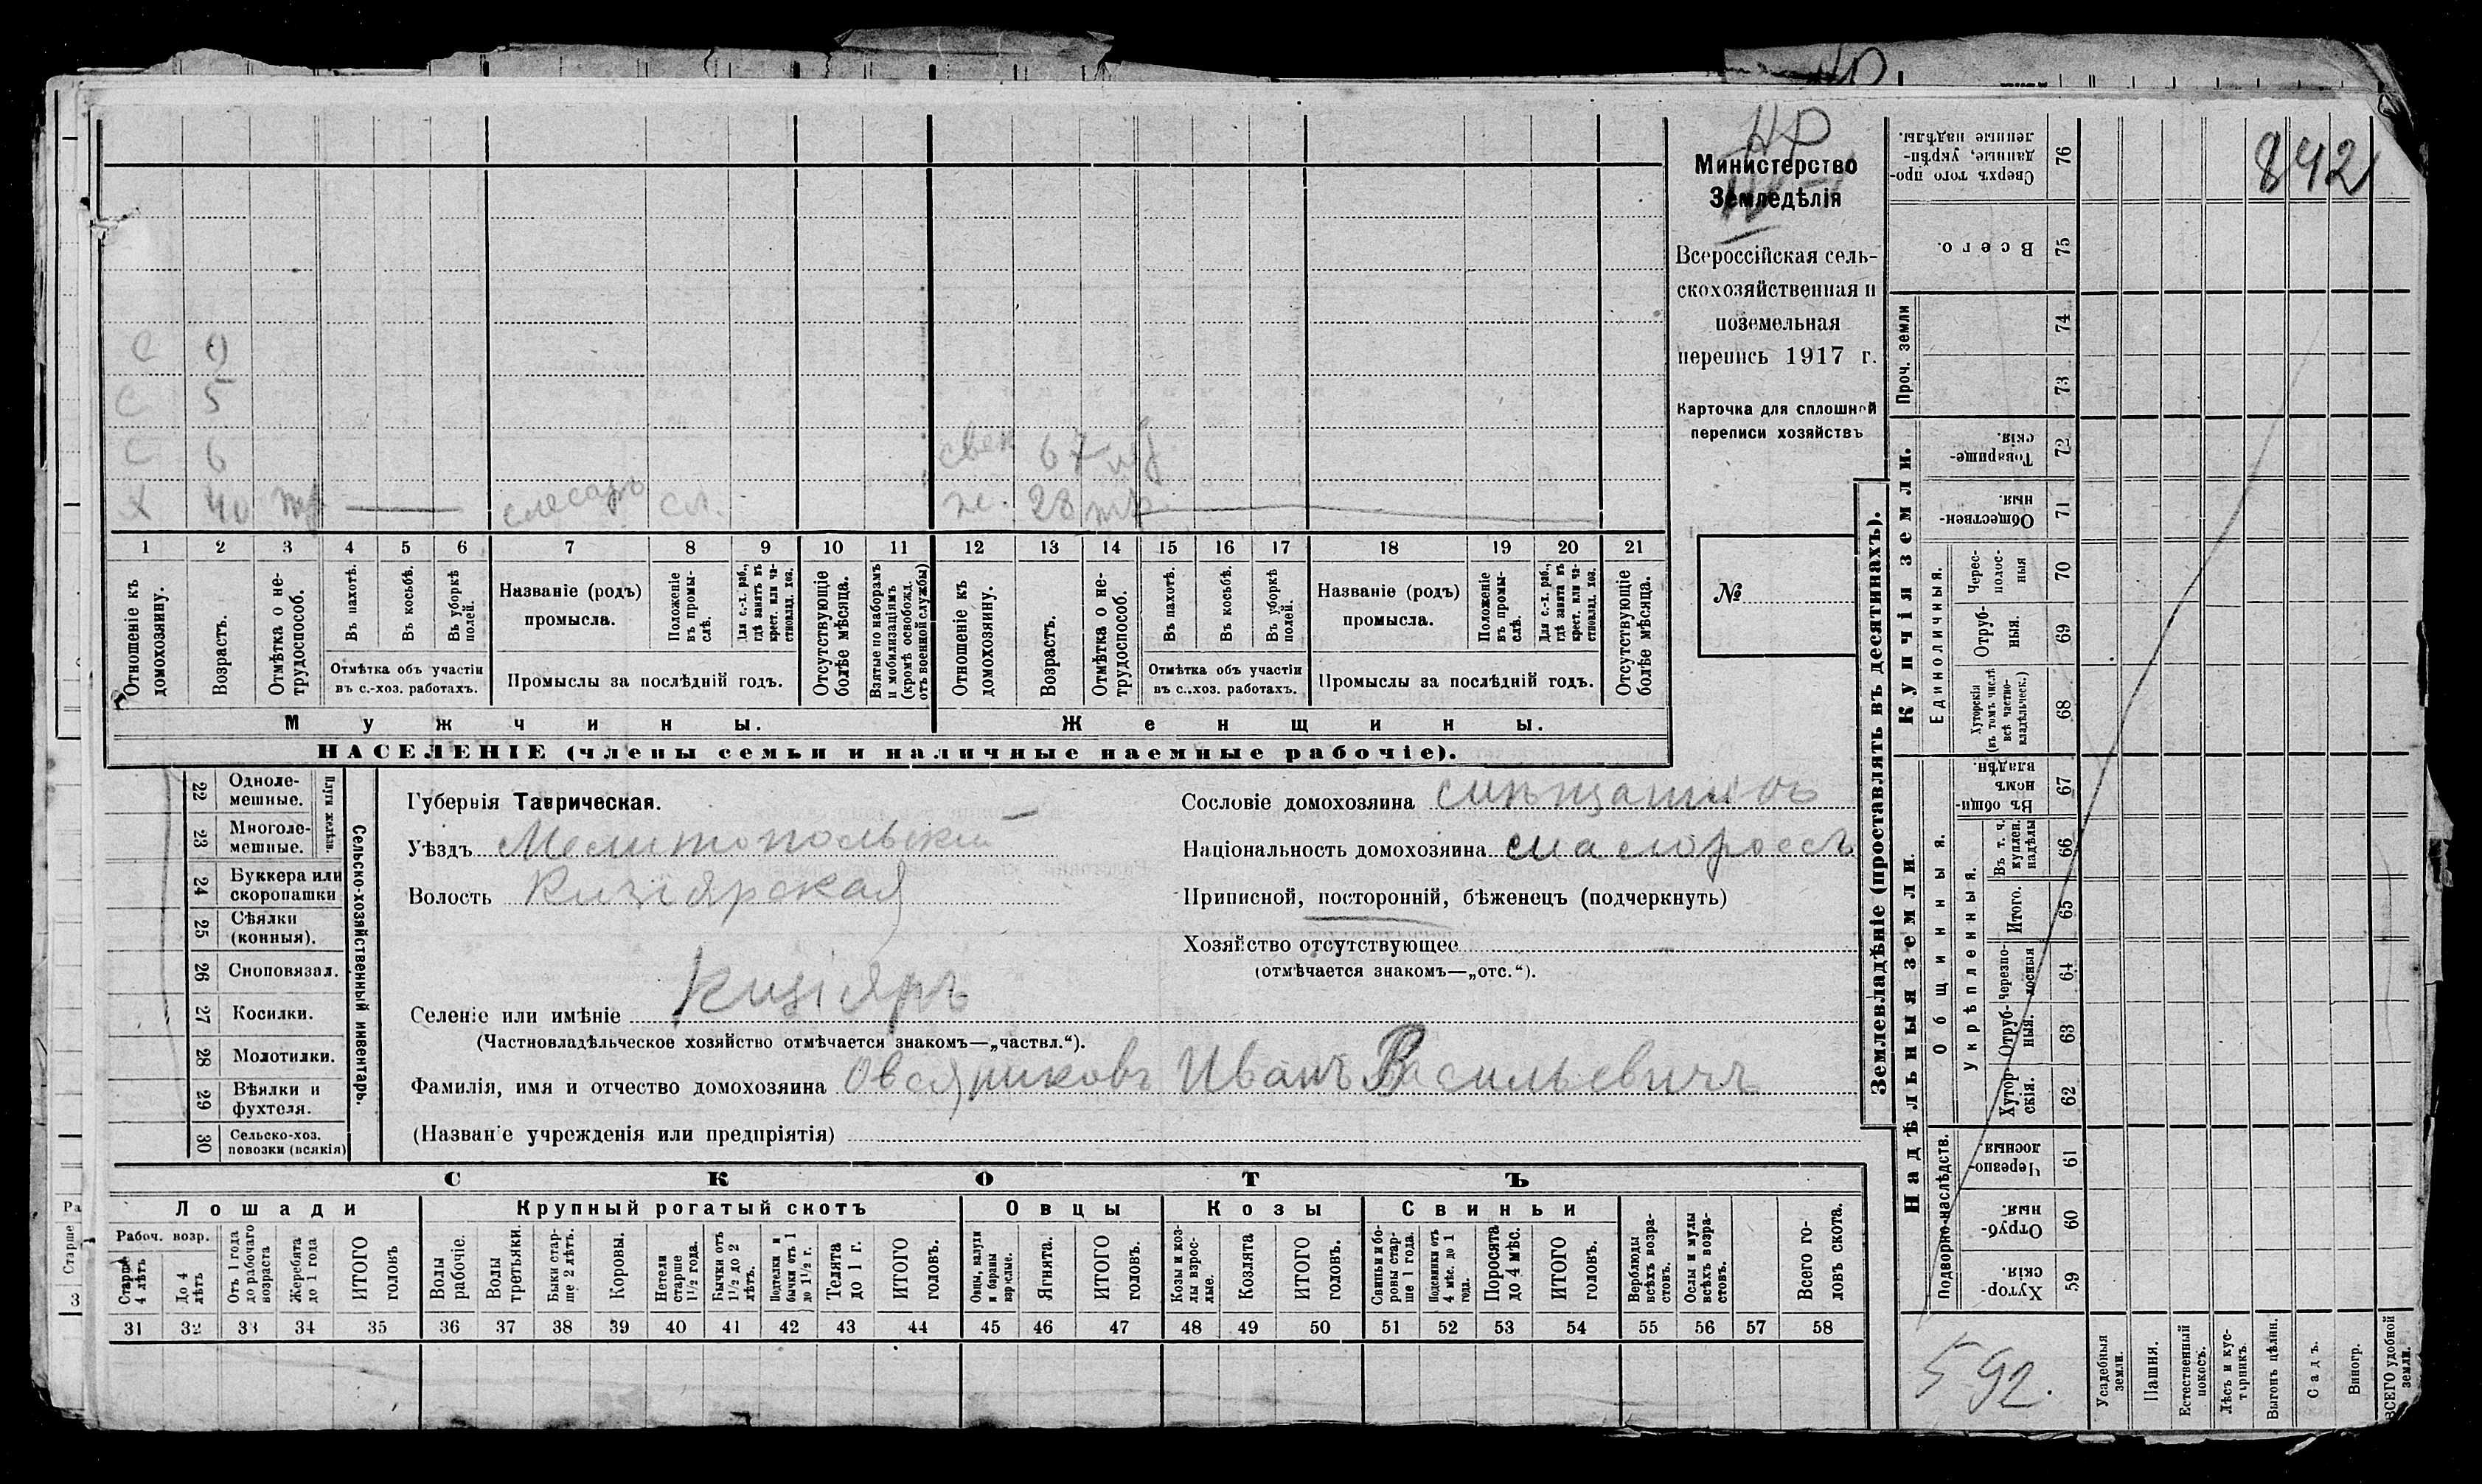 НР
Министерство
Земледѣлія
Всероссійская сель-
скохозяйственная и
поземельная
перепись 1917 г.
Карточка для сплошной
переписи хозяйствъ
№
842
С 0
С 5
С 6
свек 67
Х 40 слесарь сл. ж. 28
1 2 3 4 5 6 7 8 9 10 11 12 13 14 15 16 17 18 19 20 21
Отношеніе къ домохозяину.
Возрастъ.
Отмѣтка о не-трудоспособ.
Въ пахотѣ.
Въ косьбѣ.
Въ уборкѣ полей.
Отмѣтка объ участіи въ с.-хоз. работахъ.
Названіе (родъ) промысла.
Положеніе въ промы-слѣ.
Для с.-х. раб., гдѣ занятъ въ крест. или ча-стновлад. хоз.
Промыслы за послѣдній годъ.
Отсутствующіе болѣе мѣсяца.
Взятые по наборамъ и мобилизаціямъ (кромѣ освобожд. отъ военной службы)
Отношеніе къ домохозяину.
Возрастъ.
Отмѣтка о не-трудоспособ.
Въ пахотѣ.
Въ косьбѣ.
Въ уборкѣ полей.
Отмѣтка объ участіи въ с..хоз. работахъ.
Названіе (родъ) промысла.
Положеніе въ промы-слѣ.
Для с.-х. раб., гдѣ занята въ крест. или ча-стновлад. хоз.
Промыслы за послѣдній годъ.
Отсутствующіе болѣе мѣсяца.
Мужчины. Женщины.
НАСЕЛЕНІЕ (члены семьи и наличные наемные рабочіе).
Сельско-хозяйственный инвентарь.
Плуги желѣзн.
22 Одноле-мешные.
23 Многоле-мешные.
24 Буккера или скоропашки
25 Сѣялки (конныя).
26 Сноповязал.
27 Косилки.
28 Молотилки.
29 Вѣялки и фухтеля.
30 Сельско-хоз. повозки (всякія)
Губернія Таврическая.
Уѣздъ Мелитопольскій
Волость Кизіярская
Селеніе или имѣніе Кизіяръ
(Частновладѣльческое хозяйство отмѣчается знакомъ—„частвл.“).
Фамилія, имя и отчество домохозяина Овсянниковъ Иванъ Васильевичъ
(Названіе учрежденія или предпріятія)
Сословіе домохозяина
Національность домохозяина малороссъ
Приписной, посторонній, бѣженецъ (подчеркнуть)
Хозяйство отсутствующее
(отмѣчается знакомъ—„отс.“).
СКОТЪ
Лошади Крупный рогатый скотъ Овцы Козы Свиньи
Рабоч. возр.
Старше 4 лѣтъ
До 4 лѣтъ
Отъ 1 года до рабочаго возраста
Жеребята до 1 года
ИТОГО головъ
Волы рабочіе.
Волы третьяки.
Быки стар-ше 2 лѣтъ.
Коровы.
Нетели старше 1½ года.
Бычки отъ 1½ до 2 лѣтъ.
Подтелки и бычки отъ 1 до 1½ г.
Телята до 1 г.
ИТОГО головъ.
Овцы, валухи и бараны взрослые.
Ягнята.
ИТОГО головъ.
Козы и коз-лы взрос-лые.
Козлята
ИТОГО головъ.
Свиньи и бо-ровы стар-ше 1 года.
Подсвинки отъ 4 мѣс. до 1 года.
Поросята до 4 мѣс.
ИТОГО головъ.
Верблюды всѣхъ возра-стовъ.
Ослы и мулы всѣхъ возра-стовъ.
Всего го-ловъ скота.
31 32 33 34 35 36 37 38 39 40 41 42 43 44 45 46 47 48 49 50 51 52 53 54 55 56 57 58
Землевладѣніе (проставлять въ десятинахъ).
Купчія земли.
Проч. земли
Сверхъ того про-данные, укрѣп-ленные надѣлы. 76
Всего. 75
74
73
Товарище-скія. 72
Обществен-ныя. 71
Единоличныя.
Черес-полос-ныя 70
Отруб-ныя. 69
Хуторскія (въ томъ числѣ всѣ частно-владѣльческ.) 68
Надѣльныя земли.
Общинныя.
Въ общин-номъ владѣн. 67
Укрѣпленныя.
Въ т. ч. куплен. надѣлы 66
Итого. 65
Черезпо-лосныя 64
Отруб-ныя. 63
Хутор-скія. 62
Подворно-наслѣдств.
Черезпо-лосныя. 61
Отруб-ныя. 60
Хутор-скія. 59
592.
Усадебныя земли.
Пашня.
Естественный покосъ.
Лѣсъ и кус-тарникъ.
Выгонъ цѣлин.
Садъ.
Виногр.
ВСЕГО удобной земли.